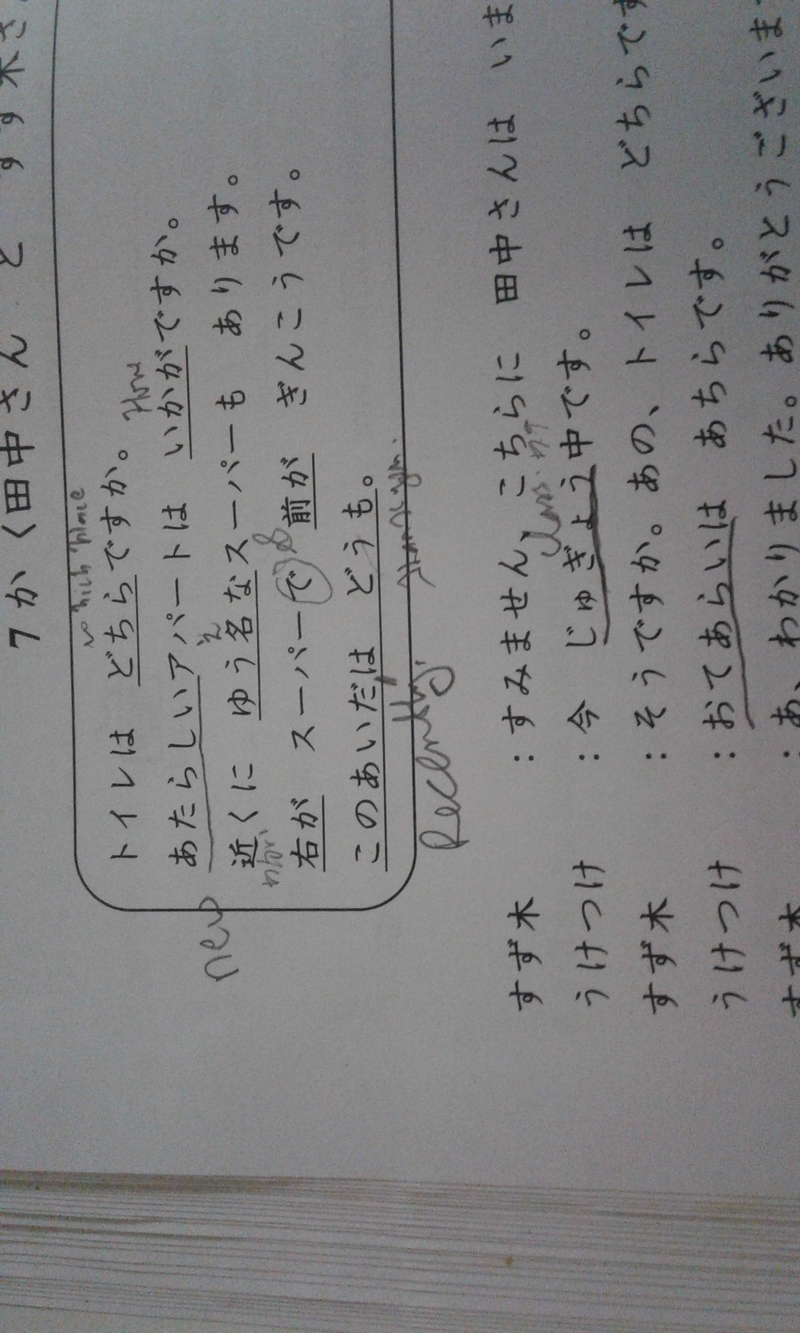 7か〈田中さん と すず木さ
which place
トイレは どちらですか。
How
new
あたらしいアパートは いかがですか。
近くに ゆう名なスーパーも あります。
右が スーパーで 前が ぎんこうです。
&
このあいだは どうも。
Recently
すず木 : すみません、こちらに 田中さんは いま
class
うけつけ : 今 じゅぎょう中です。
すず木 : そうですか。あの、トイレは どちらです
うけつけ : おてあらいは あちらです。
すず木 : あ、わかりました。ありがとうございま